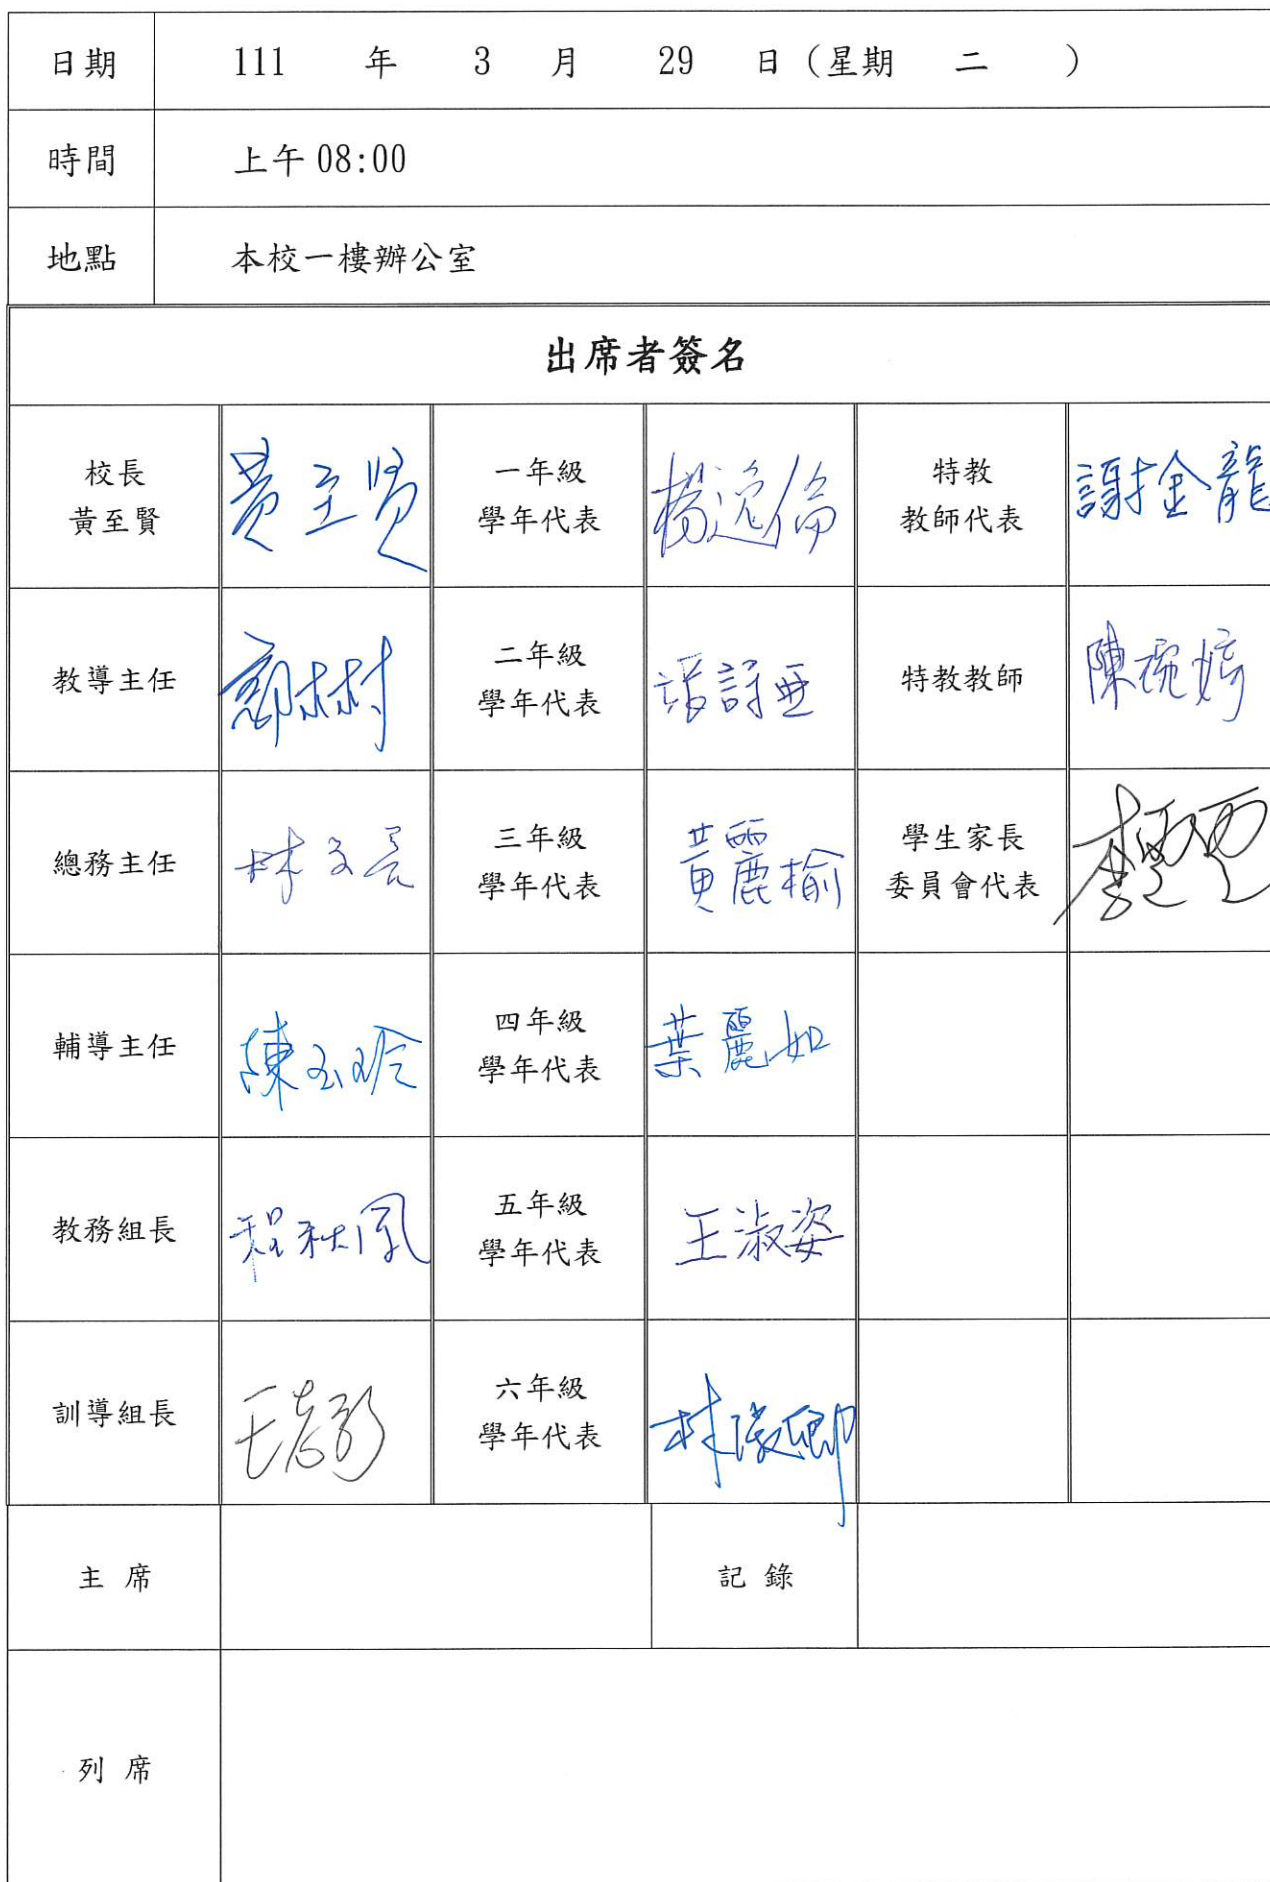 日期 111 年 3 月 29 日（星期 二 ）
時間 上午 08:00
地點 本校一樓辦公室
出席者簽名
校長
黃至賢
黃至賢
一年級
學年代表
楊逸倫
特教
教師代表
謝金龍
教導主任
二年級
學年代表
潘詩亞
特教教師
陳琬婷
總務主任
林文長
三年級
學年代表
黃麗榆
學生家長
委員會代表
輔導主任
陳玉玲
四年級
學年代表
葉麗如
教務組長
程秋鳳
五年級
學年代表
王淑姿
訓導組長
六年級
學年代表
主 席
記 錄
列 席